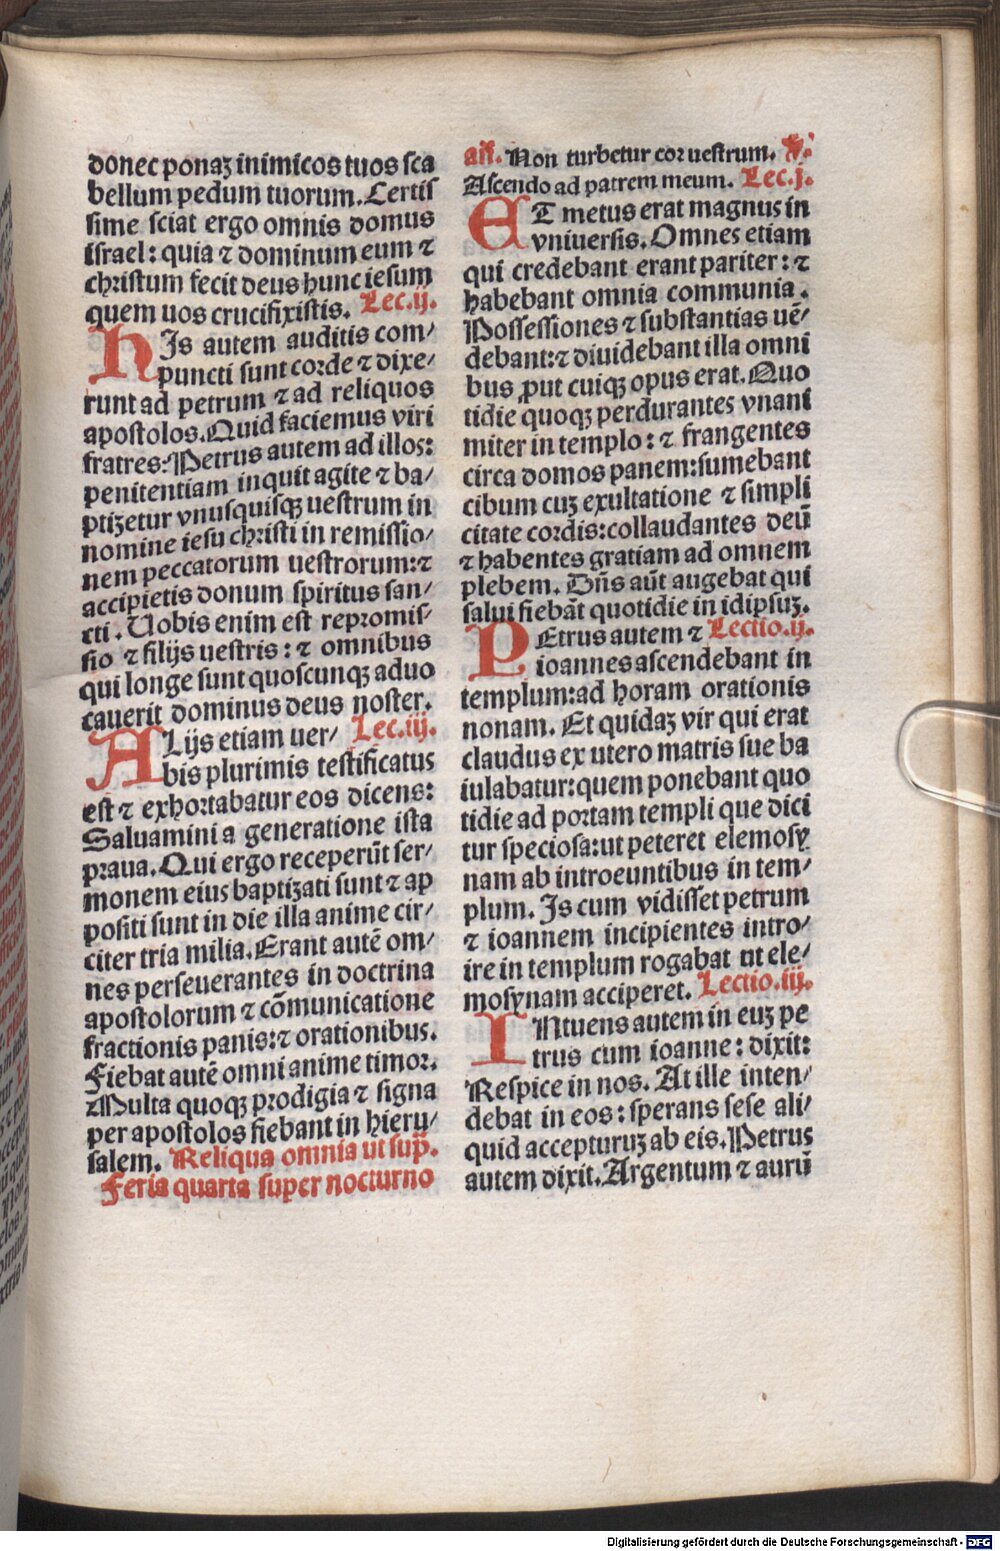 donec ponaꝫ inimicos tuos sca
bellum pedum tuorum. Certis
sime sciat ergo omnis domus
israel: quia ⁊ dominum eum ⁊
christum fecit deus hunc iesum
quem uos crucifixistis. Lec.ij.
HJs autem auditis com/
puncti sunt corde ⁊ dixe/
runt ad petrum ⁊ ad reliquos
apostolos. Quid faciemus viri
fratres: Petrus autem ad illos:
penitentiam inquit agite ⁊ ba/
ptizetur vnusquisqꝫ uestrum in
nomine iesu christi in remissio/
nem peccatorum uestrorum: ⁊
accipietis donum spiritus san/
cti. Uobis enim est repromis/
sio ⁊ filijs uestris: ⁊ omnibus
qui longe sunt quoscunqꝫ aduo
cauerit dominus deus noster.
ALijs etiam uer/ Lec.iij.
bis plurimis testificatus
est ⁊ exhortabatur eos dicens:
Saluamini a generatione ista
praua. Qui ergo receperūt ser/
monem eius baptizati sunt ⁊ ap
positi sunt in die illa anime cir/
citer tria milia. Erant autē om/
nes perseuerantes in doctrina
apostolorum ⁊ cōmunicatione
fractionis panis: ⁊ orationibus.
Fiebat autē omni anime timor.
Multa quoqꝫ prodigia ⁊ signa
per apostolos fiebant in hieru/
salem. Reliqua omnia ut sup̄.
Feria quarta super nocturno
añ. Non turbetur cor uestrum. ℣.
Ascendo ad patrem meum. Lec.j.
ET metus erat magnus in
vniuersis. Omnes etiam
qui credebant erant pariter: ⁊
habebant omnia communia.
Possessiones ⁊ substantias uē/
debant: ⁊ diuidebant illa omni
bus ꝓut cuiqꝫ opus erat. Quo
tidie quoqꝫ perdurantes vnani
miter in templo: ⁊ frangentes
circa domos panem: sumebant
cibum cuꝫ exultatione ⁊ simpli
citate cordis: collaudantes deū
⁊ habentes gratiam ad omnem
plebem. Dn̄s aūt augebat qui
salui fiebāt quotidie in idipsuꝫ.
PEtrus autem ⁊ Lectio.ij.
ioannes ascendebant in
templum: ad horam orationis
nonam. Et quidaꝫ vir qui erat
claudus ex utero matris sue ba
iulabatur: quem ponebant quo
tidie ad portam templi que dici
tur speciosa: ut peteret elemosy
nam ab introeuntibus in tem/
plum. Js cum vidisset petrum
⁊ ioannem incipientes intro/
ire in templum rogabat ut ele/
mosynam acciperet. Lectio.iij.
INtuens autem in euꝫ pe
trus cum ioanne: dixit:
Respice in nos. At ille inten/
debat in eos: sperans sese ali/
quid accepturuꝫ ab eis. Petrus
autem dixit. Argentum ⁊ aurū
Digitalisierung gefördert durch die Deutsche Forschungsgemeinschaft - DFG